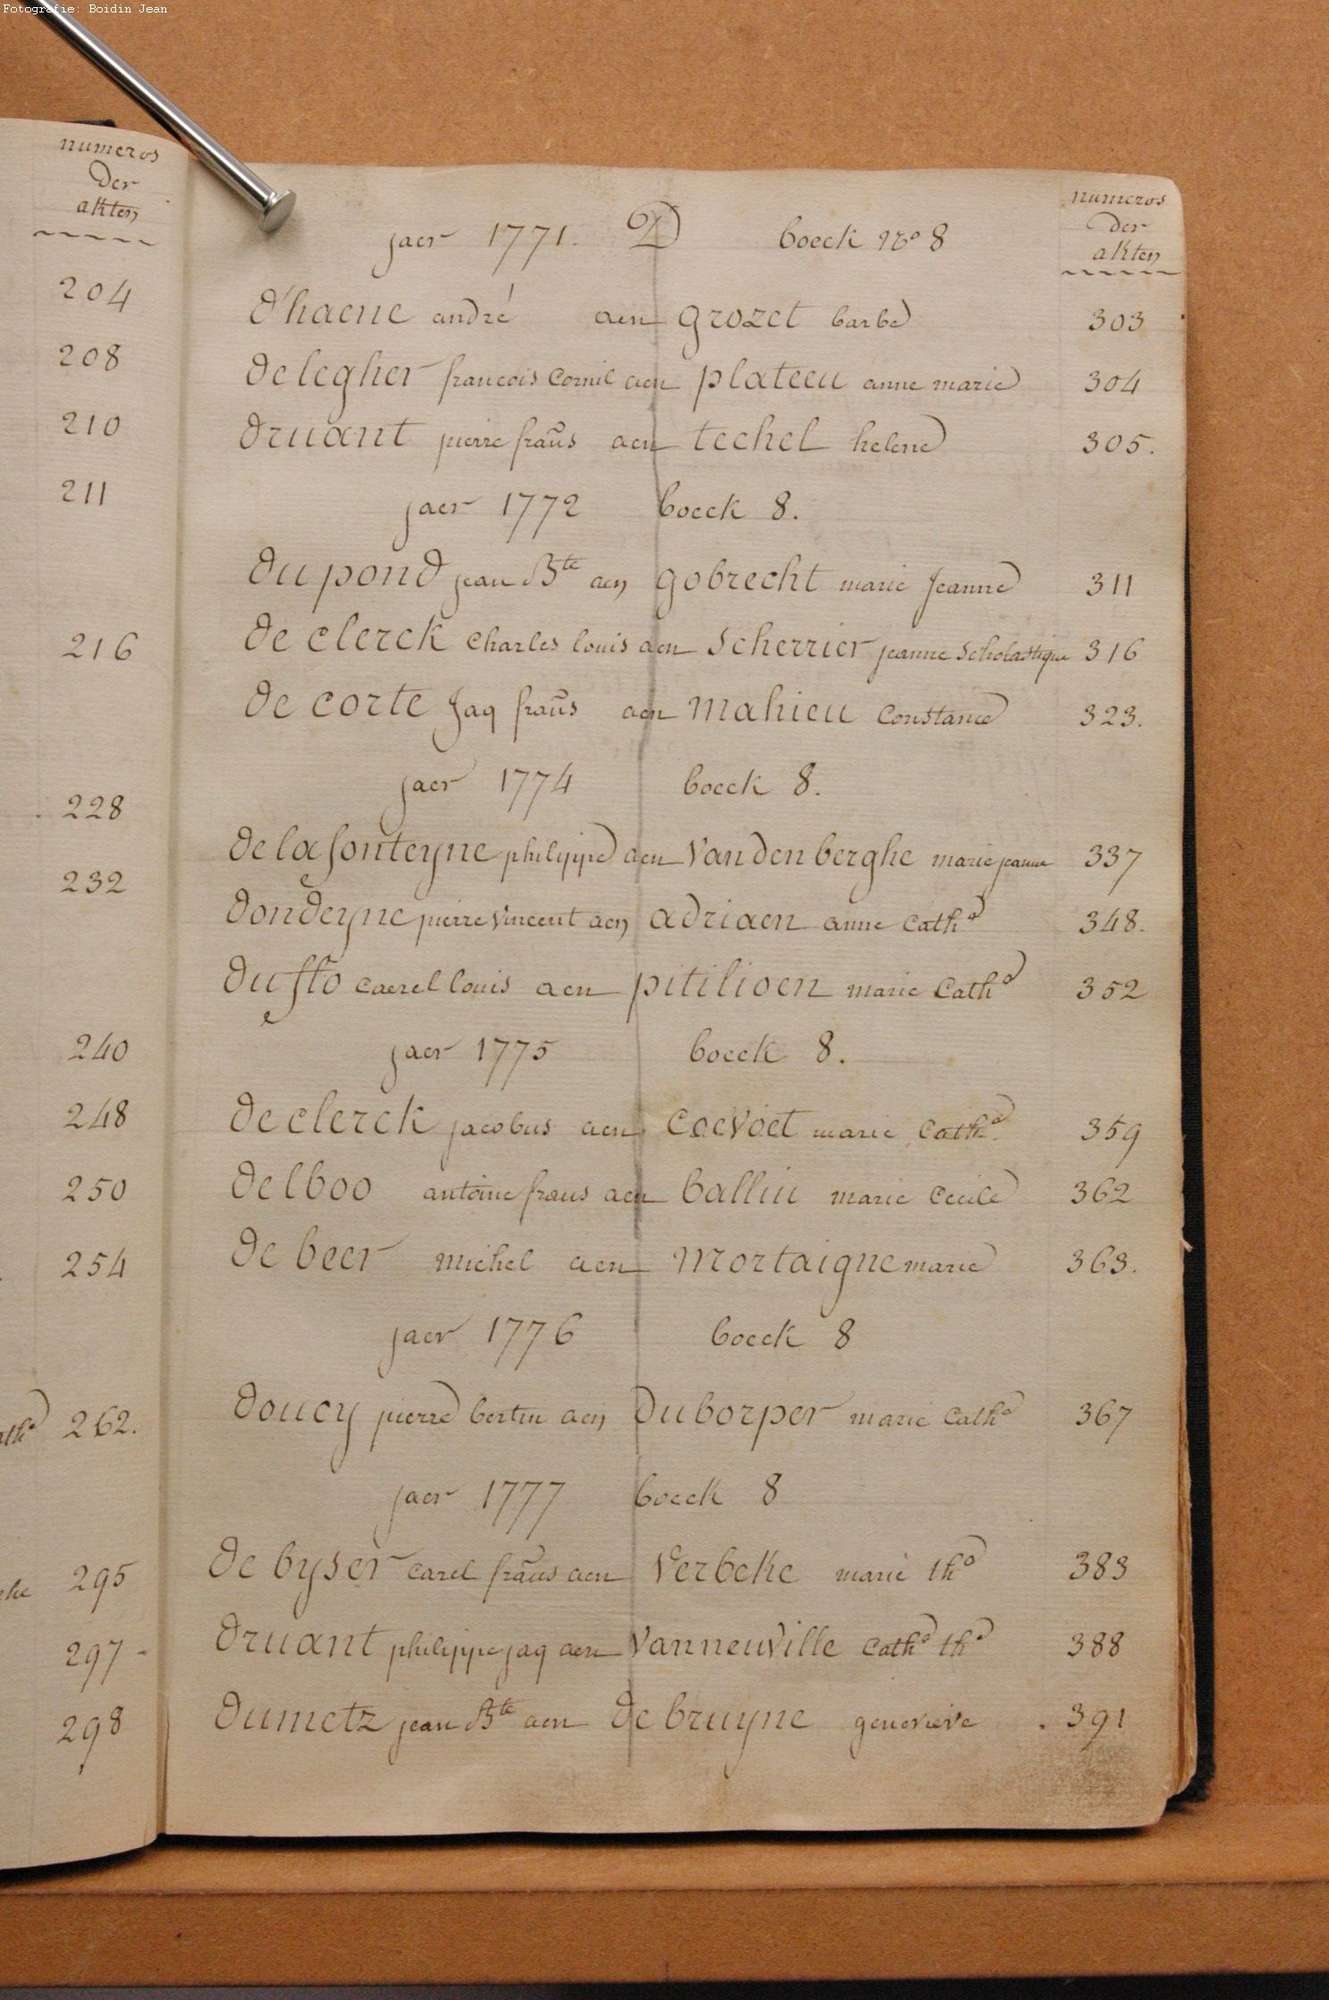 Fotografie: Boidin Jean
numeros
der
akten
204
208
210
211
216
228
232
240
248
250
254
262.
295
297
298
jaer 1771. D boeck no 8
numeros
der
akten
d'haene andré aen grozet barbe 303
de legher francois Cornil aen plateeu anne marie 304
druant pierre frañs aen techel helene 305.
jaer 1772 boeck 8.
du pond jean Bte aen gobrecht marie Jeanne 311
de clerck Charles louis aen scherrier jeanne Scholastique 316
de corte Jaq frañs aen mahieu Constance 323.
jaer 1774 boeck 8.
de lafonteyne philippe aen Vandenberghe marie jeanne 337
dondeyne pierre Vincent aen adriaen anne Cathe 348.
duflo Caerel louis aen pitilioen marie Cathe 352
jaer 1775 boeck 8.
de clerck jacobus aen Coevoet marie Cathe 359
delboo antoine frans aen ballin marie Cecile 362
de beer michel aen mortaigne marie 363.
jaer 1776 boeck 8
doucy pierre bertin aen duborper marie Cathe 367
jaer 1777 boeck 8
de byser Carel frañs aen Verbeke marie the 383
druant philippe jaq aen Vanneuville Cathe the 388
dumetz jean Bte aen de bruyne genevieve . 391